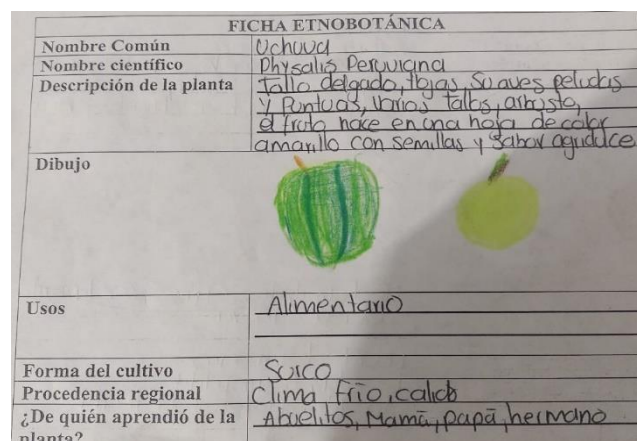 FICHA ETNOBOTÁNICA
Nombre Común Uchuva
Nombre científico Physalis Peruviana
Descripción de la planta Tallo delgado, Hojas, Suaves peludas
y Puntuas, Varios tallos, arbusto,
el fruto nace en una hoja de color
amarillo con semillas y Sabor agridulce
Dibujo
Usos Alimentario
Forma del cultivo Surco
Procedencia regional Clima frío, calido
¿De quién aprendió de la Abuelitos, Mamá, papá, hermano
planta?